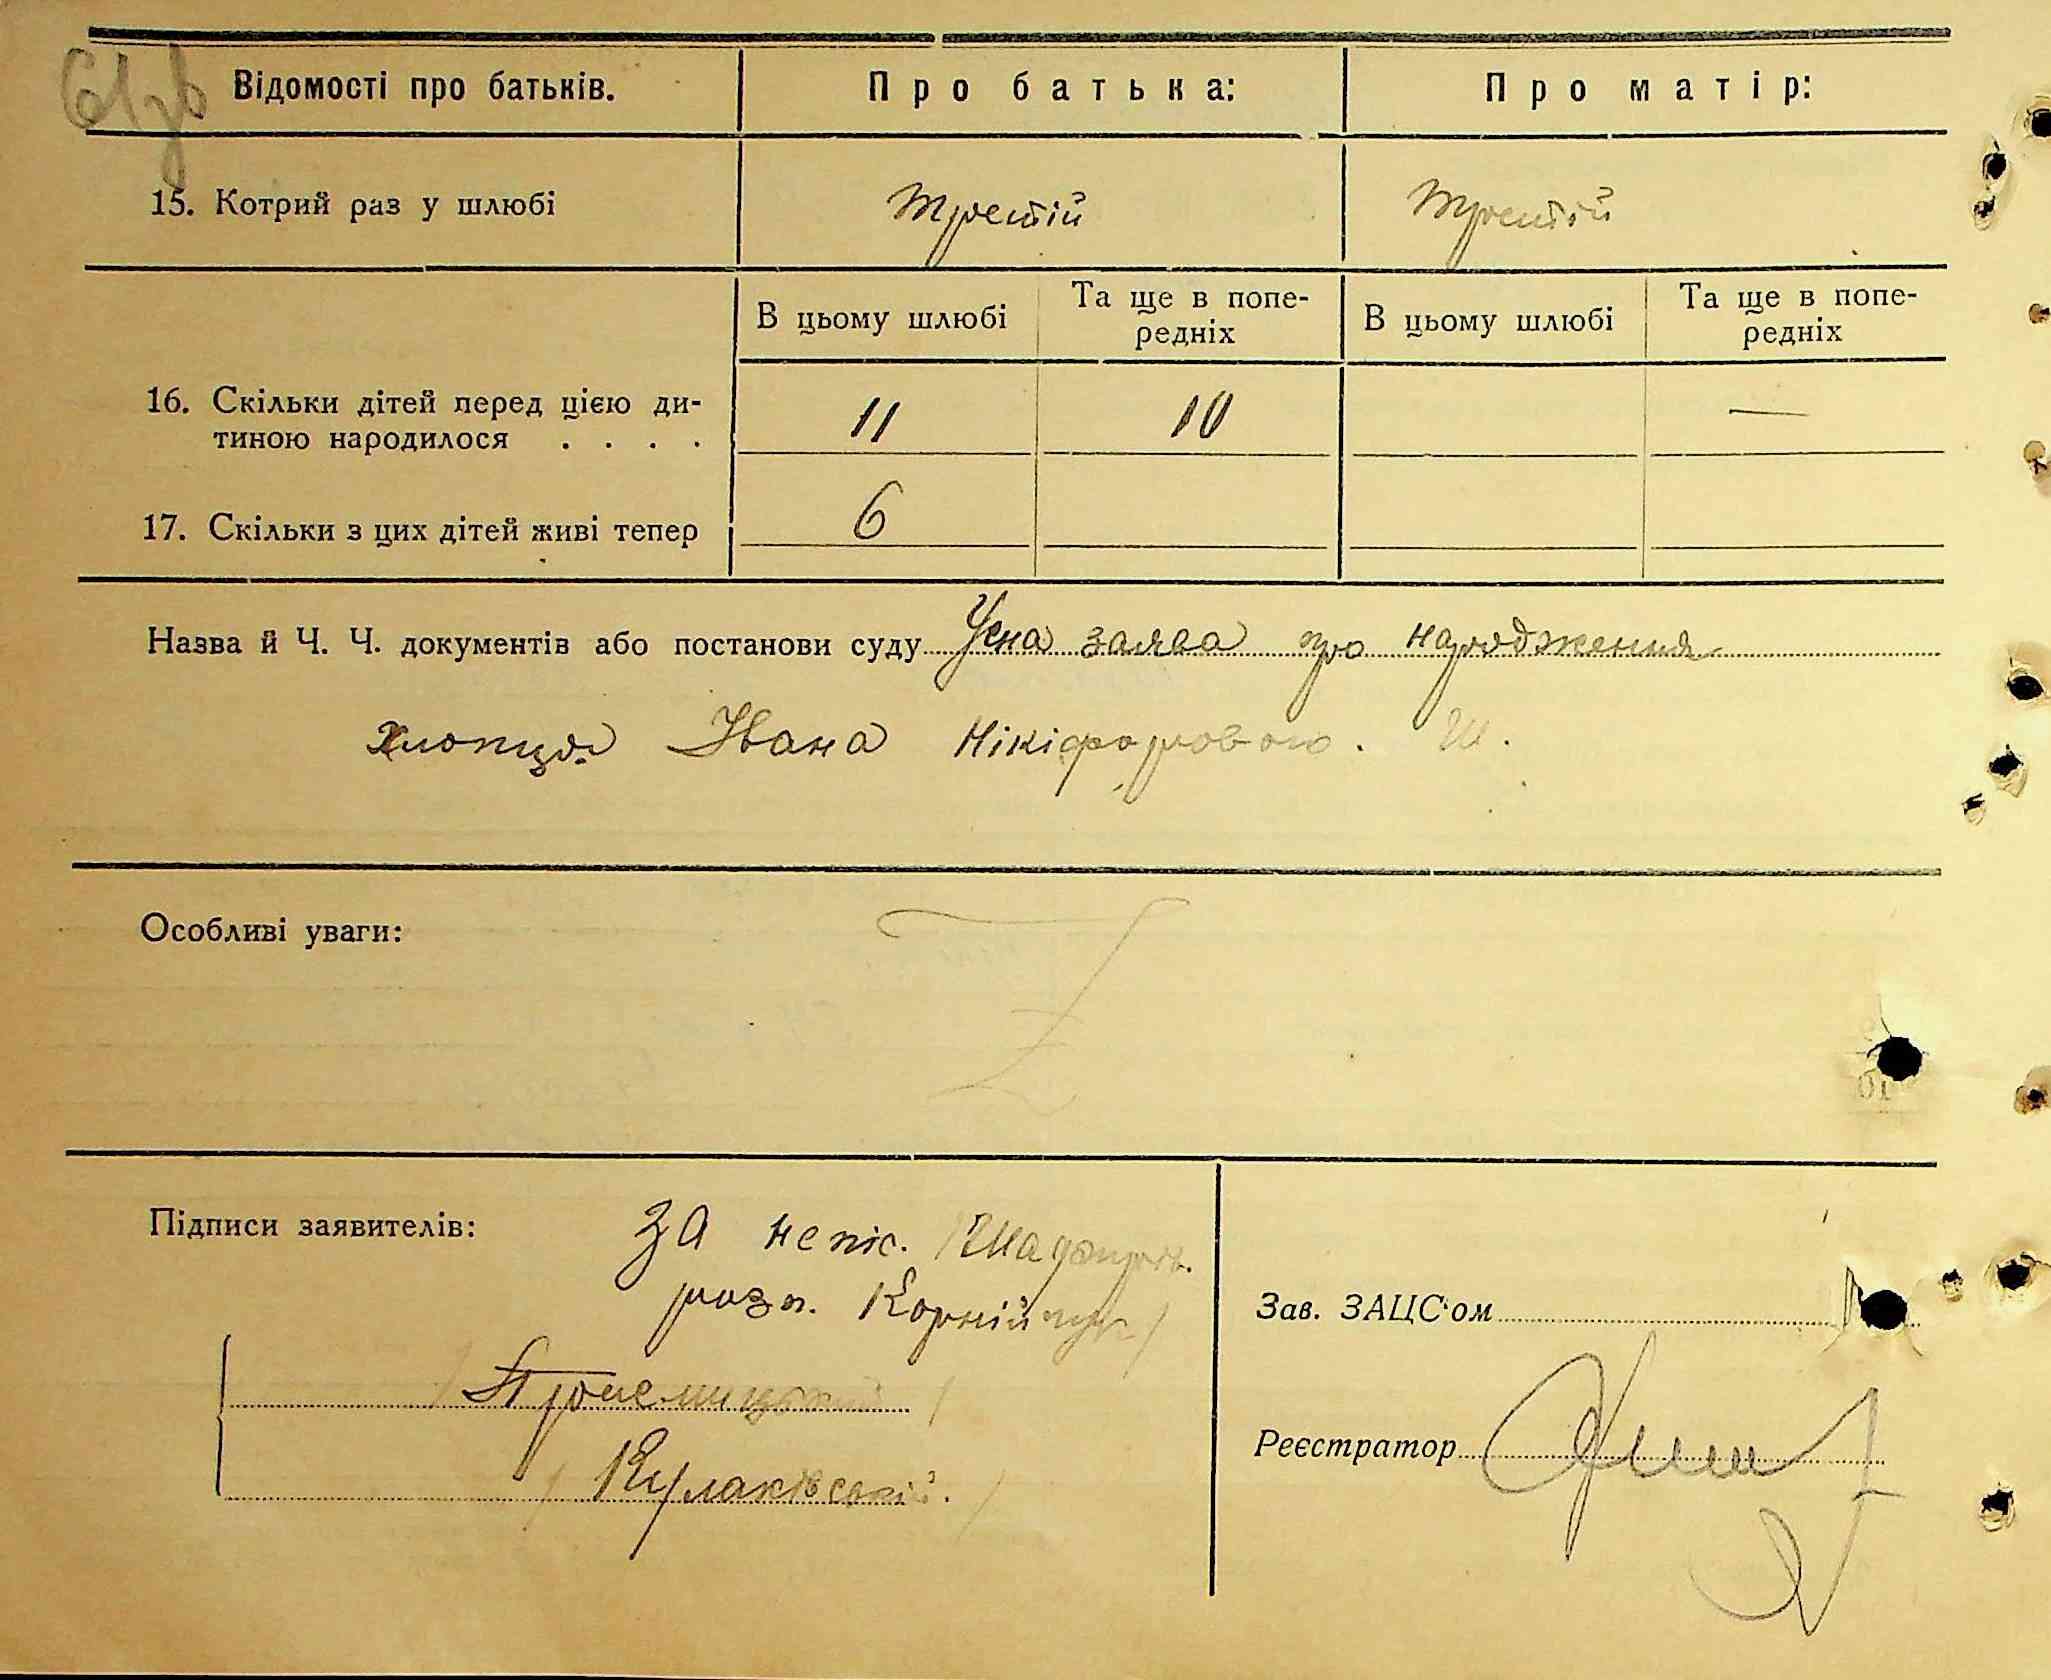 61зв
Відомості про батьків. Про батька: Про матір:
15. Котрий раз у шлюбі третій третій
В цьому шлюбі Та ще в попе-редніх В цьому шлюбі Та ще в попе-редніх
16. Скільки дітей перед цією ди-
тиною народилося . . . . 11 10 —
17. Скільки з цих дітей живі тепер 6
Назва й Ч. Ч. документів або постанови суду Усна заява про народження
хлопця Івана Нікіфорового. Ш.
Особливі уваги:
Підписи заявителів: За непис.
розп. Корнійчук /
Зав. ЗАЦС'ом
Реєстратор
/ Кулаківській. /